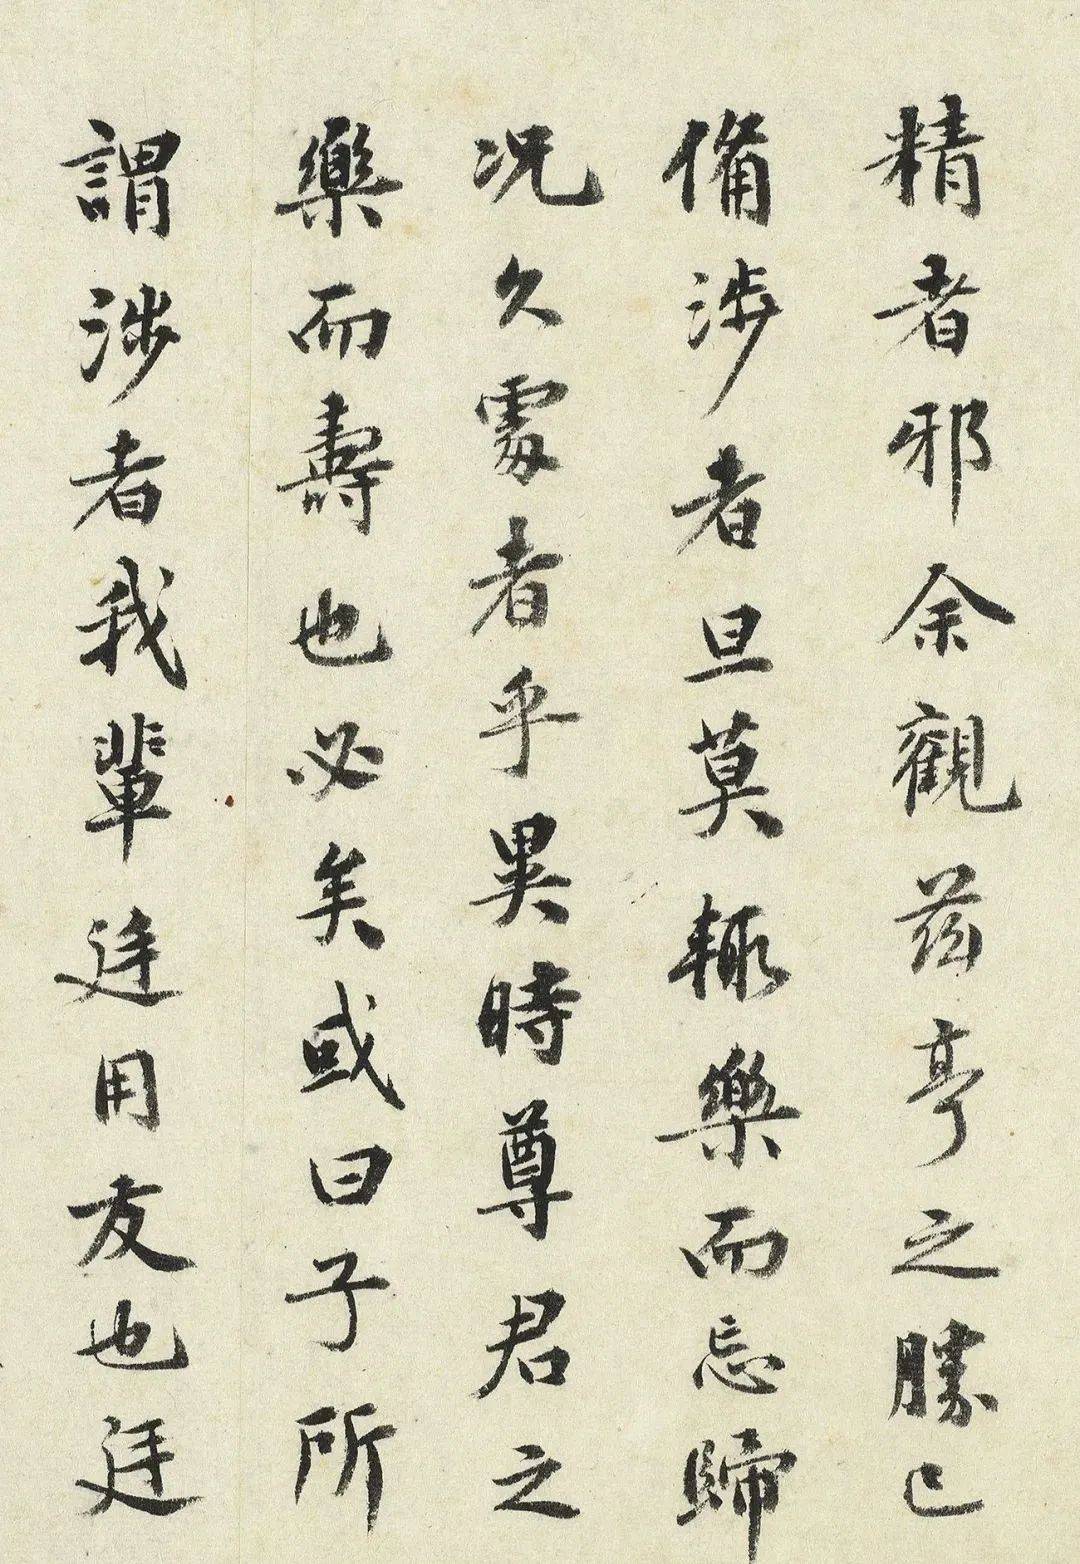 精者邪余觀茲亭之勝已
備涉者旦莫輒樂而忘歸
況久處者乎異時尊君之
樂而壽也必矣或曰子所
謂涉者我輩廷用友也廷